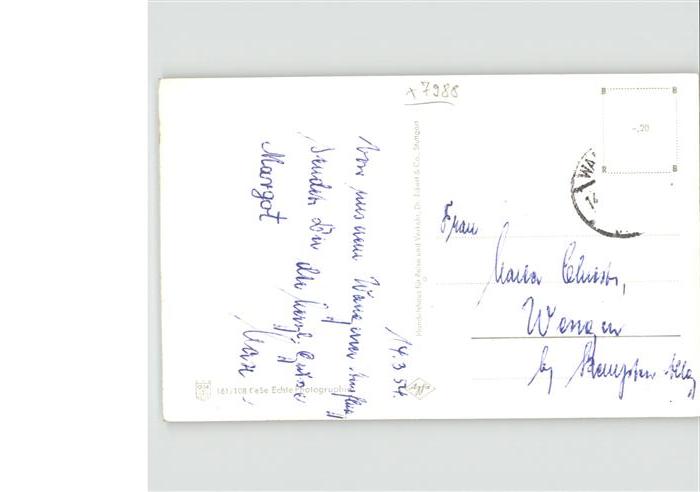 x 7988
-,20
14.3.54.
Von unserem Wangener Ausflug
senden Dir die herzl. Grüße
Margot
Max
Frau
Maria Christ,
Wengen
by Kempten Allg
Kunstblatthaus für Reise und Verkehr, Dr. Eckert & Co., Stuttgart
161/108 CeSe Echte Photographie
Agfa